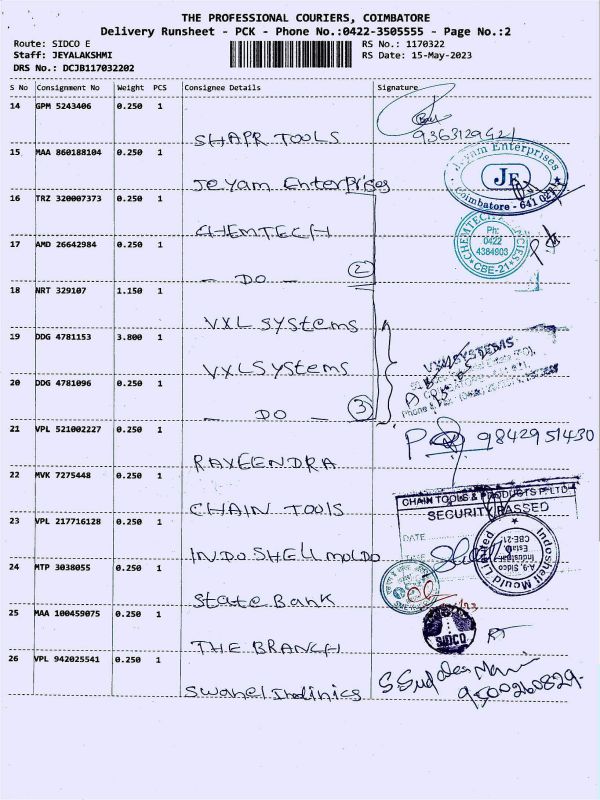 THE PROFESSIONAL COURIERS, COIMBATORE
Delivery Runsheet - PCK - Phone No.:0422-3505555 - Page No.:2
Route: SIDCO E
RS No.: 1170322
Staff: JEYALAKSHMI
RS Date: 15-May-2023
DRS No.: DCJB117032202
S No Consignment No Weight PCS Consignee Details Signature
14 GPM 5243406 0.250 1
SHAPR TOOLS
9363129421
15 MAA 860188104 0.250 1
Jeyam Enterprises
Jeyam Enterprises
JE
Coimbatore - 641 021
16 TRZ 320007373 0.250 1
CHEMTECH
Ph:
0422
4364903
CBE-21
17 AMD 26642984 0.250 1
- DO - 2
18 NRT 329107 1.150 1
VXL SYSTEMS
19 DDG 4781153 3.800 1
VXL SYSTEMS
VXL SYSTEMS
20 DDG 4781096 0.250 1
- DO - 3
21 VPL 521002227 0.250 1
RAVEENDRA
9842951430
22 MVK 7275448 0.250 1
CHAIN TOOLS
CHAIN TOOLS & PRODUCTS P. LTD
SECURITY PASSED
DATE
TIME
23 VPL 217716128 0.250 1
INDO SHELL MOLDO
Indoshell Mould Limited
A-9, Sidco
Industrial
Estate
CBE-21.
24 MTP 3038055 0.250 1
State Bank
25 MAA 100459075 0.250 1
THE BRANCH
SIDCO
26 VPL 942025541 0.250 1
9500260829